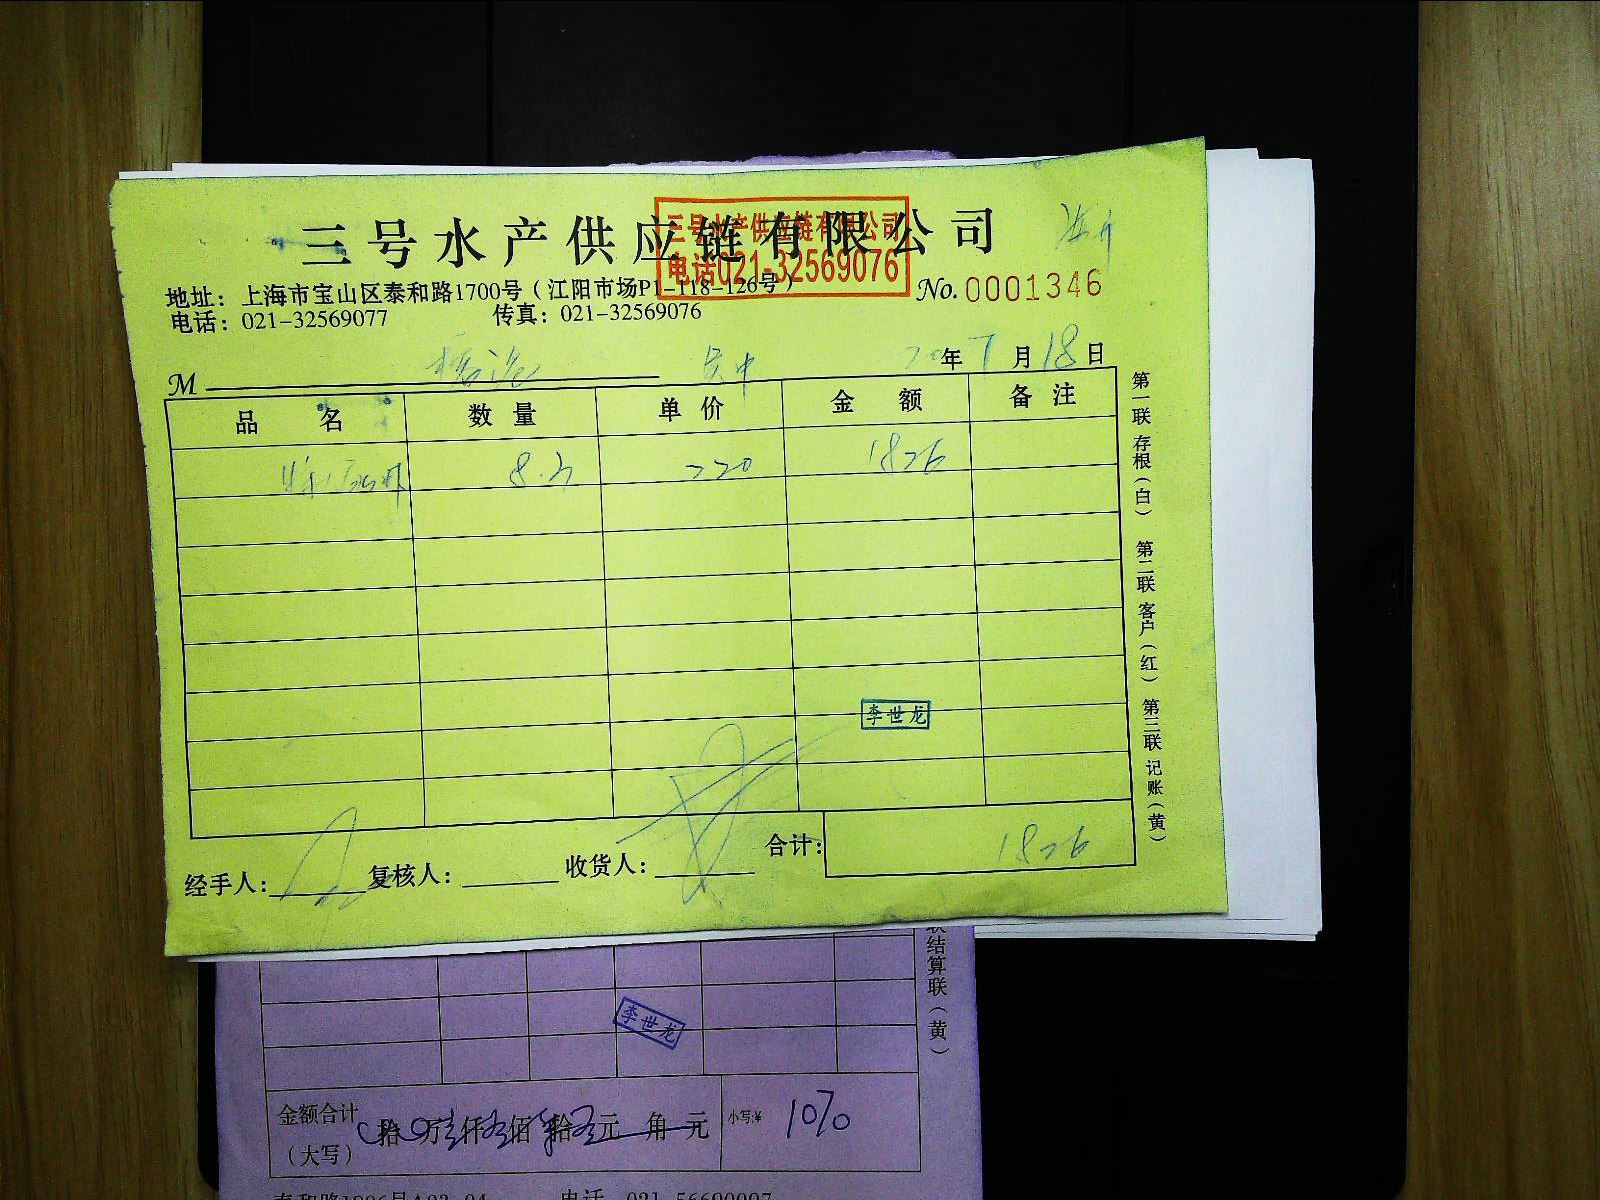 三号水产供应链有限公司
三号水产供应链有限公司
电话021-32569076
地址：上海市宝山区泰和路1700号（江阳市场P1-118-126号）
No. 0001346
电话：021-32569077 传真：021-32569076
M
年 7 月 18 日
品名 数量 单价 金额 备注
220 1826
李世龙
合计： 1826
经手人： 复核人： 收货人：
第一联 存根（白） 第二联 客户（红） 第三联 记账（黄）
联结算联（黄）
李世龙
金额合计
（大写）
拾 万 仟 佰 拾 元 角 元
小写:¥ 1070